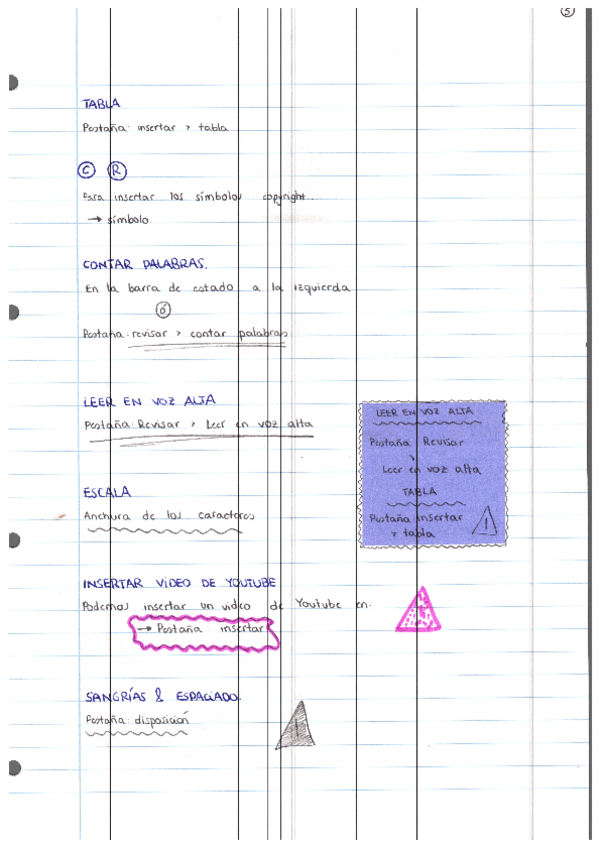 5
TABLA
Pestaña: insertar > tabla
C R
Para insertar los símbolos copyright...
→ símbolo.
CONTAR PALABRAS.
En la barra de estado a la izquierda
ó
Pestaña: revisar > contar palabras
LEER EN VOZ ALTA
Pestaña: Revisar > Leer en voz alta
LEER EN VOZ ALTA
Pestaña Revisar
>
Leer en voz alta
TABLA
Pestaña insertar
> tabla
!
ESCALA
Anchura de los caracteres
INSERTAR VÍDEO DE YOUTUBE
Podemos insertar un vídeo de Youtube en.
→ Pestaña insertar
!
SANGRÍAS & ESPACIADO.
Pestaña: disposición
!